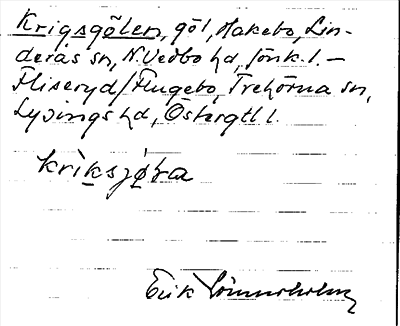 Krigsgölen, göl, Hakebo, Lin-
derås sn, N. Vedbo hd, Jönk. l. –
Fliseryd/Flugebo, Trehörna sn,
Lysings hd, Östergtl l.
krìksjǿra
Erik